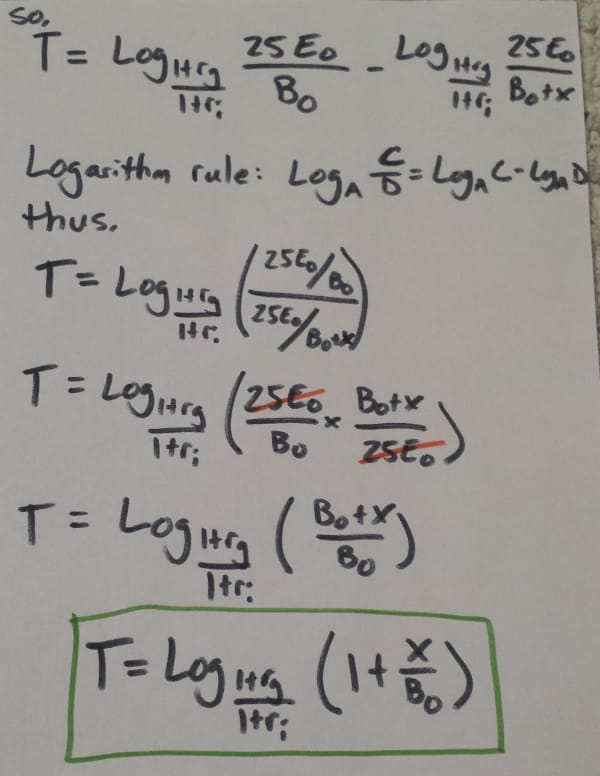 So,
T = Log_{\frac{1+r_g}{1+r_i}} \frac{25E_0}{B_0} - Log_{\frac{1+r_g}{1+r_i}} \frac{25E_0}{B_0+x}
Logarithm rule: Log_A \frac{C}{D} = Log_A C - Log_A D
thus.
T = Log_{\frac{1+r_g}{1+r_i}} \left( \frac{25E_0/B_0}{25E_0/B_0+x} \right)
T = Log_{\frac{1+r_g}{1+r_i}} \left( \frac{25E_0}{B_0} \times \frac{B_0+x}{25E_0} \right)
T = Log_{\frac{1+r_g}{1+r_i}} \left( \frac{B_0+x}{B_0} \right)
T = Log_{\frac{1+r_g}{1+r_i}} \left( 1 + \frac{x}{B_0} \right)